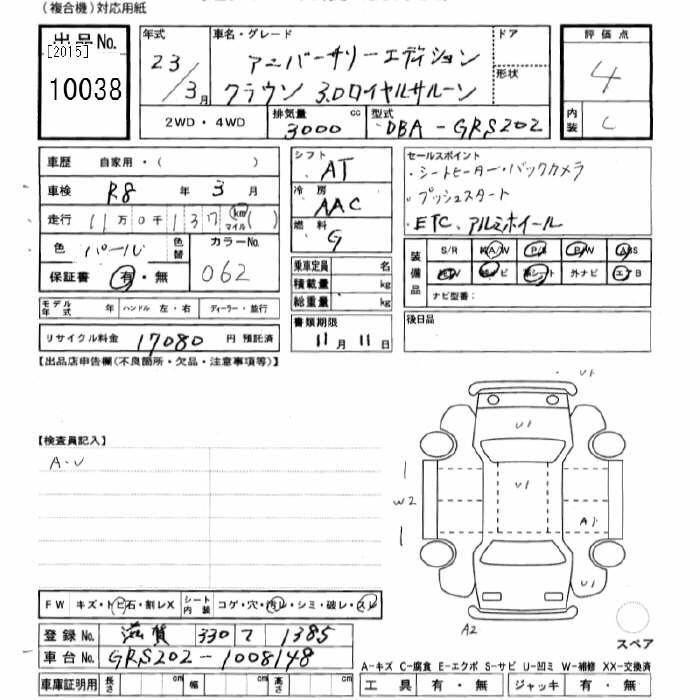 (複合機)対応用紙
出品No.
[2015]
10038
年式
23/3月
車名・グレード
アニバーサリーエディション
クラウン 3.0ロイヤルサルーン
ドア
形状
2WD・4WD
排気量
3000 cc
型式
DBA-GRS202
評価点
4
内装
C
車歴 自家用・( )
車検 R8年3月
走行 11万0千137 km マイル ( )
色 パール 色替
カラーNo.
062
保証書 有・無
モデル年式 年 ハンドル 左・右 ディーラー・並行
リサイクル料金 17080 円 預託済
シフト
AT
冷房
AAC
燃料
G
乗車定員 名
積載量 kg
総重量 kg
書類期限
11月11日
セールスポイント
・シートヒーター・バックカメラ
・プッシュスタート
・ETC、アルミホイール
装備品
S/R 純A/W P/S P/W ABS
純TV 純ナビ 革シート 外ナビ エアB
ナビ型番:
後日品
【出品店申告欄(不良箇所・欠品・注意事項等)】
【検査員記入】
A・U
U1
U1
U1
W2
A1
U1
A2
スペア
FW キズ・トビ石・割レX シート内装 コゲ・穴・汚レ・シミ・破レ・スレ
登録No. 滋賀 330 て 1385
車台No. GRS202-1008148
車庫証明用 長さ cm 幅 cm 高さ cm
A-キズ C-腐食 E-エクボ S-サビ U-凹ミ W-補修 XX-交換済
工具 有・無 ジャッキ 有・無